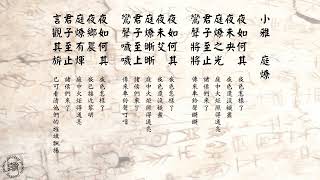 小雅 庭燎
夜如何其 夜色怎樣了
夜未央 夜色還沒盡
庭燎之光 庭中火炬照得通亮
君子至止 諸侯們來了
鸞聲將將 傳來車鈴聲鏘鏘
夜如何其 夜色怎樣了
夜未艾 夜色還沒盡
庭燎晣晣 庭中火炬照得通亮
君子至止 諸侯們來了
鸞聲噦噦 傳來車鈴聲叮噹
夜如何其 夜色怎樣了
夜鄉晨 夜已接近黎明
庭燎有煇 庭中火炬照得通亮
君子至止 諸侯們來了
言觀其旂 已可看清他們的旌旗飄揚